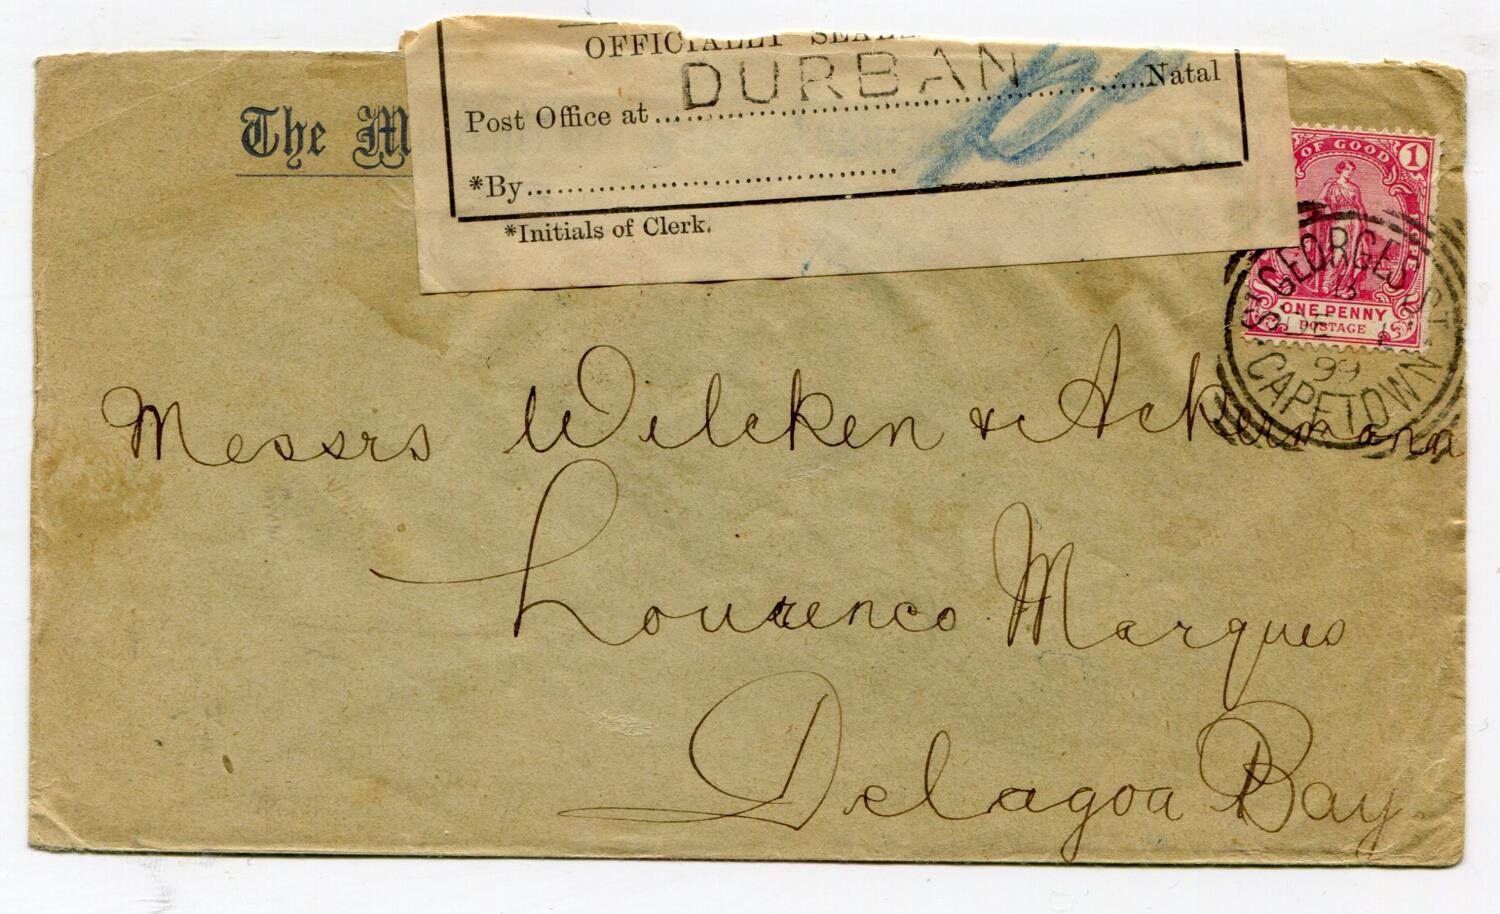 OFFICIALLY SEALE
DURBAN
Natal
Post Office at
*By
*Initials of Clerk.
The M
OF GOOD
1
ONE PENNY
POSTAGE
ST GEORGES ST
13
DE 1
99
CAPETOWN
Messrs Wilcken & Ackermann
Lourenco Marques
Delagoa Bay.